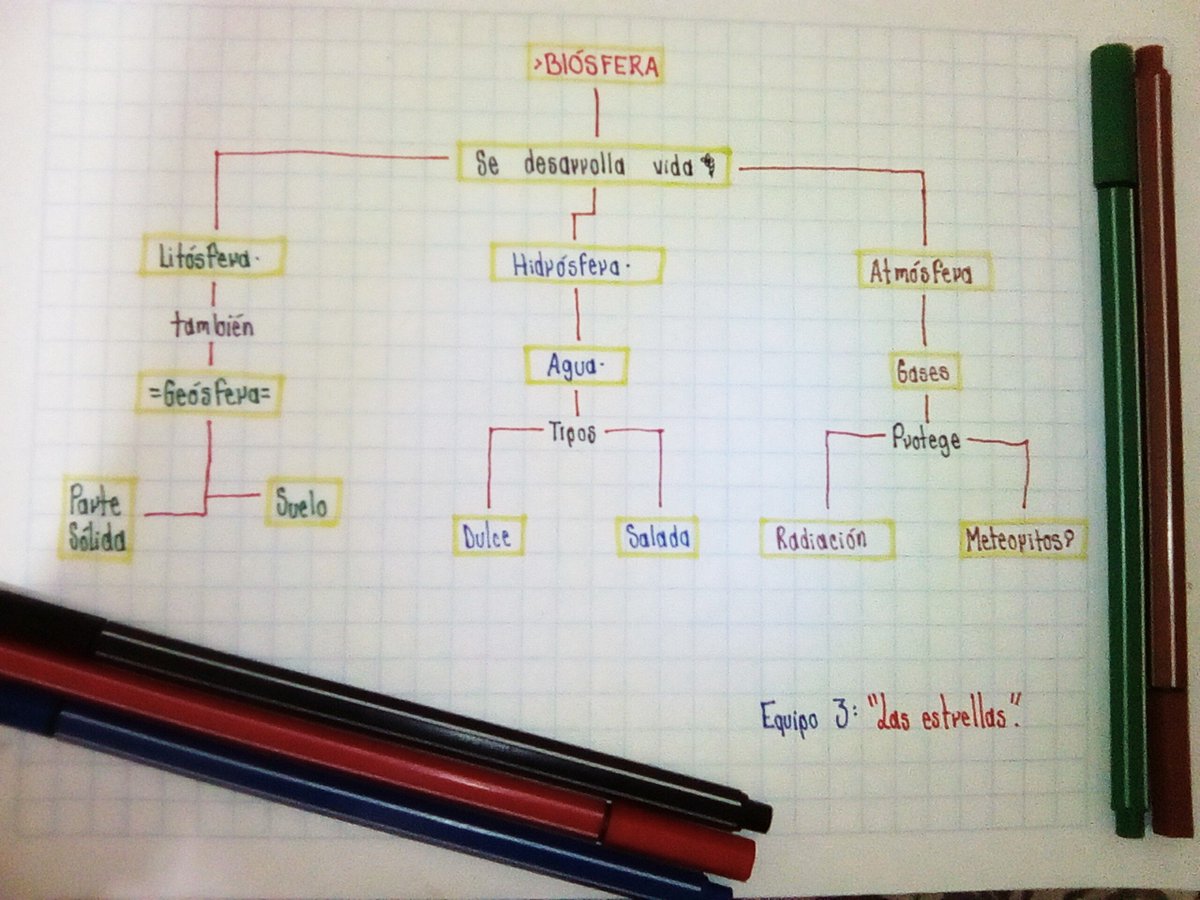 >BIÓSFERA
Se desarrolla vida
Litósfera.
Hidrósfera.
Atmósfera
también
=Geósfera=
Agua.
Gases
Tipos
Protege
Parte
Sólida
Suelo
Dulce
Salada
Radiación
Meteoritos?
Equipo 3: "Las estrellas".